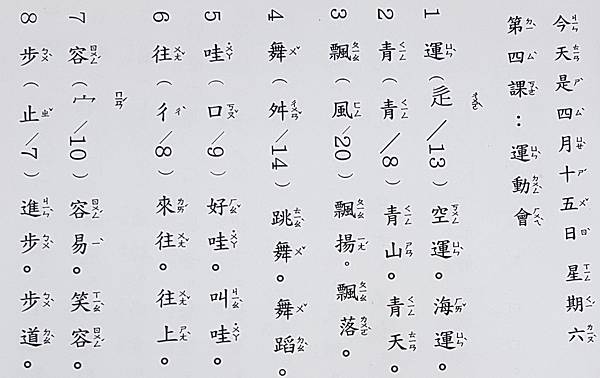 今天是四月十五日星期六
第四課：運動會
1 運（辵/13）空運。海運。
2 青（青/8）青山。青天。
3 飄（風/20）飄揚。飄落。
4 舞（舛/14）跳舞。舞蹈。
5 哇（口/9）好哇。叫哇。
6 往（彳/8）來往。往上。
7 容（宀/10）容易。笑容。
8 步（止/7）進步。步道。